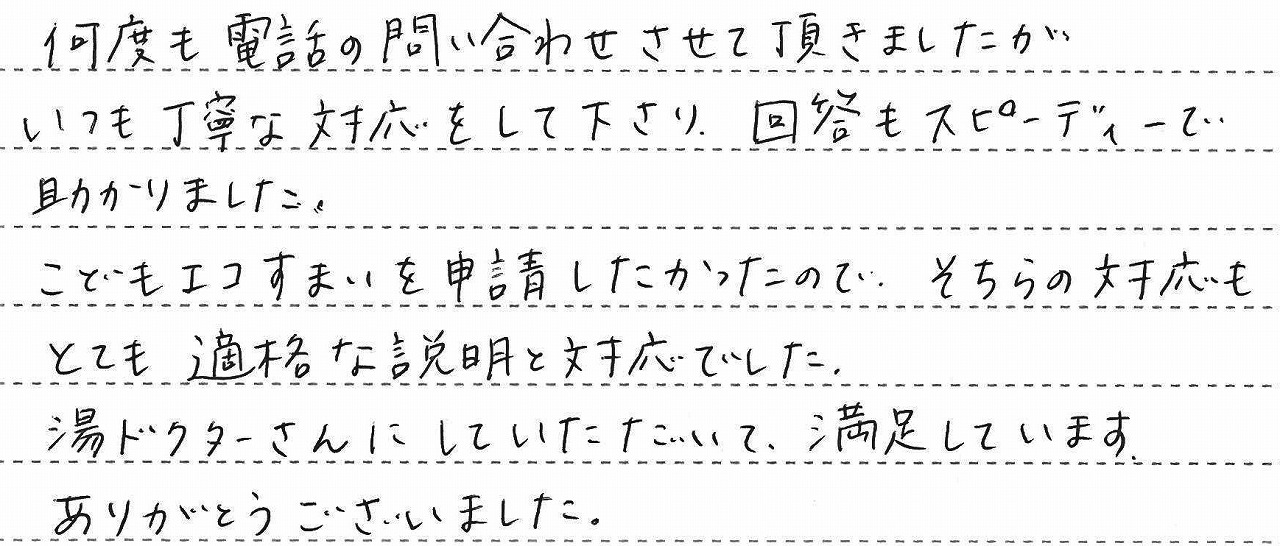 何度も電話の問い合わせさせて頂きましたが
いつも丁寧な対応をして下さり、回答もスピーディーで
助かりました。
こどもエコすまいを申請したかったので、そちらの対応も
とても適格な説明と対応でした。
湯ドクターさんにしていたただいて、満足しています。
ありがとうございました。